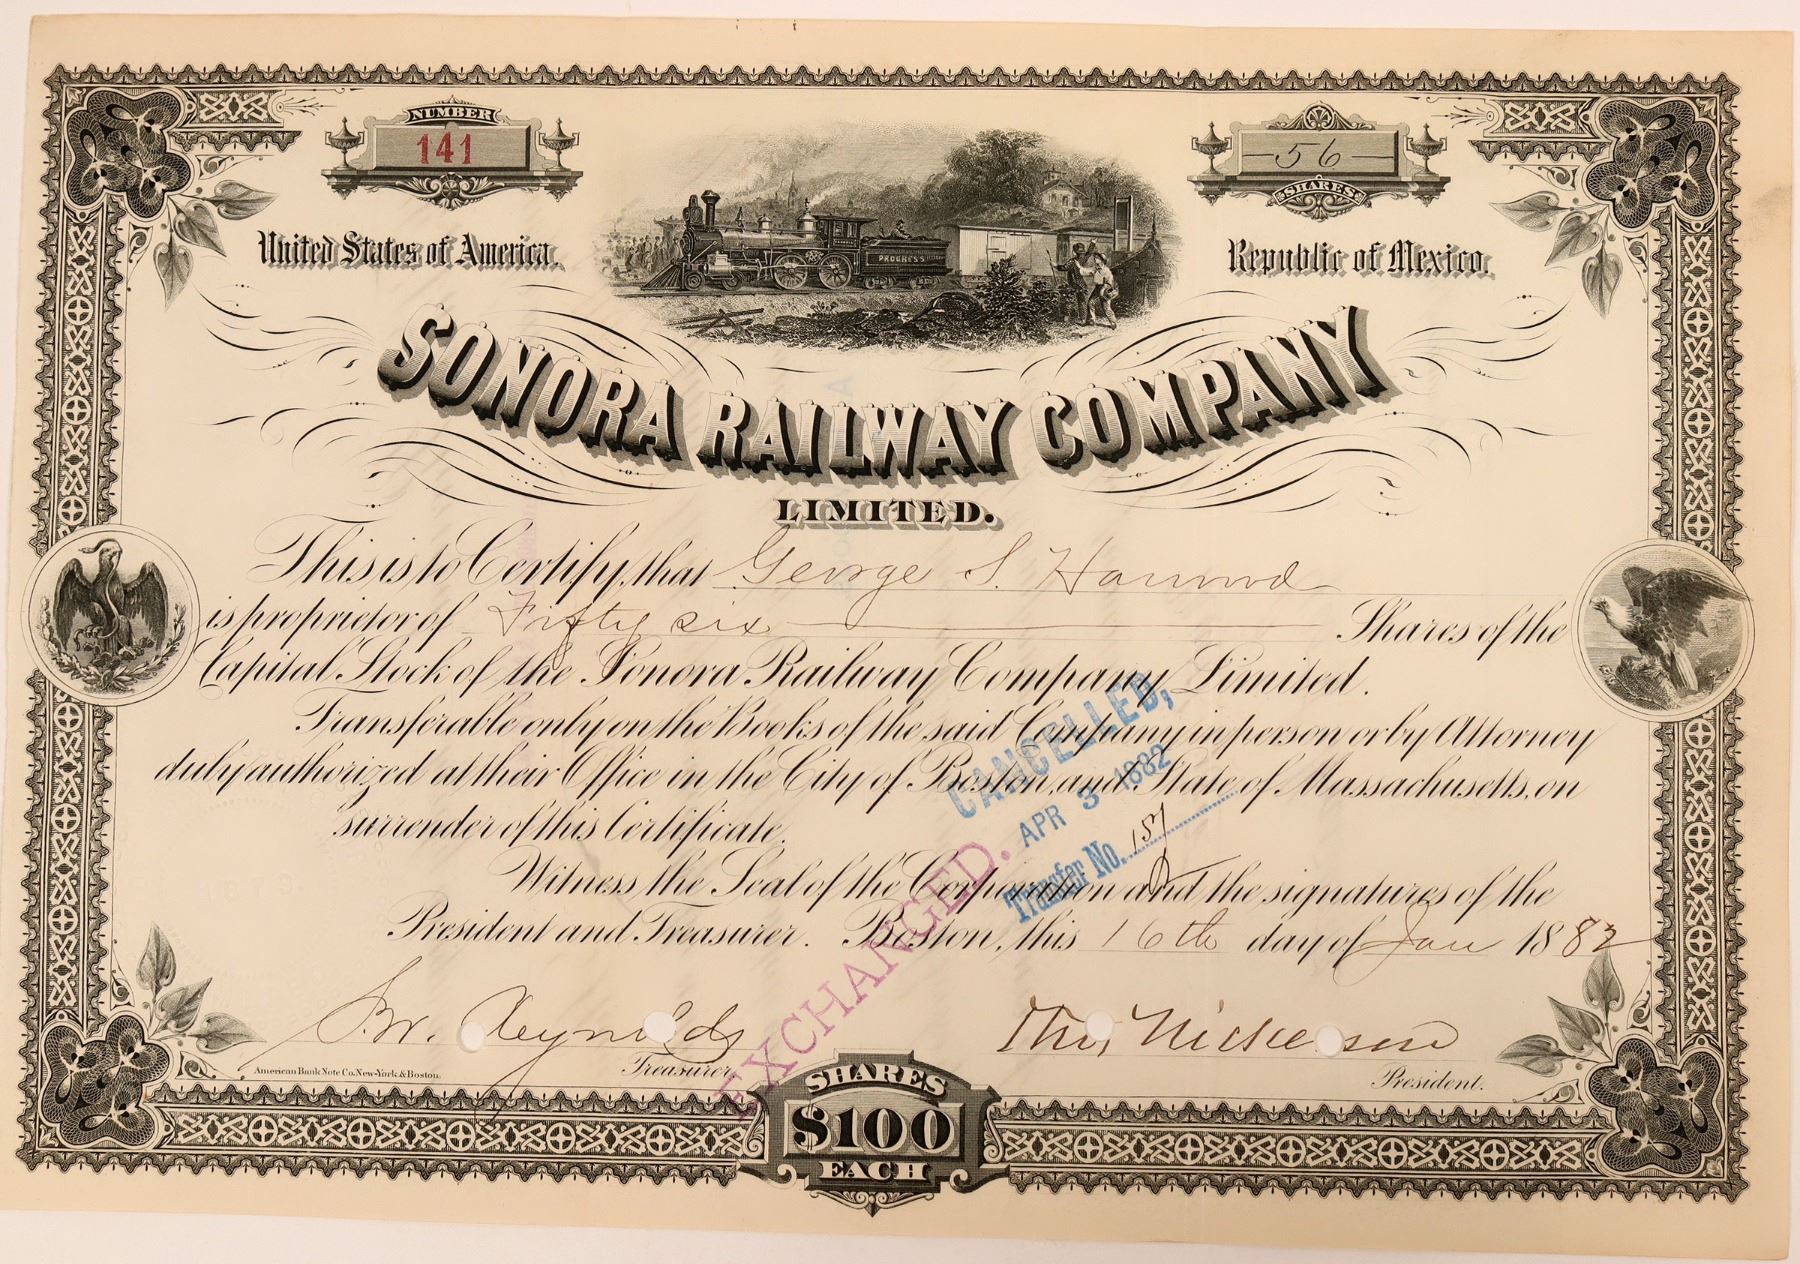 NUMBER
141
56
SHARES
United States of America.
Republic of Mexico.
PROGRESS
SONORA RAILWAY COMPANY
LIMITED.
This is to Certify, that George S. Harwood
is proprietor of Fifty six Shares of the
Capital Stock of the Sonora Railway Company, Limited.
Transferable only on the Books of the said Company in person or by Attorney
duly authorized at their Office in the City of Boston, and State of Massachusetts, on
surrender of this Certificate.
Witness, the Seal of the Corporation and the signatures of the
President and Treasurer. Boston, this 16th day of Jan 1882
CANCELLED,
APR 3 1882
Transfer No. 157
EXCHANGED.
Reynolds
Treasurer
Thos. Nickerson
President.
American Bank Note Co. New-York & Boston.
SHARES
$100
EACH